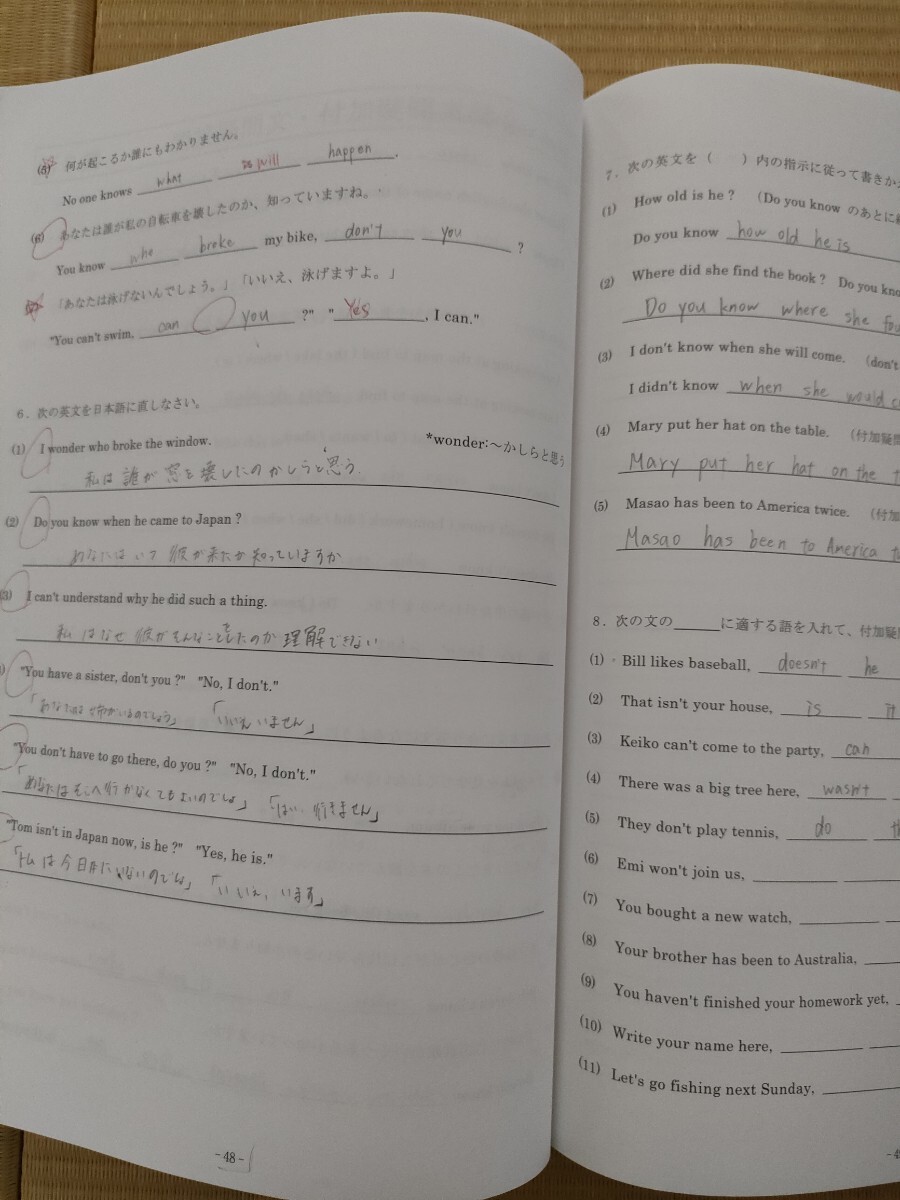 (5) 何が起こるか誰にもわかりません。
No one knows what will happen .
(6) あなたは誰が私の自転車を壊したのか、知っていますね。
You know who broke my bike, don't you ?
「あなたは泳げないんでしょう。」「いいえ、泳げますよ。」
"You can't swim, can you ?" " Yes , I can."
6．次の英文を日本語に直しなさい。
(1) I wonder who broke the window. *wonder:～かしらと思う
私は誰が窓を壊したのかしらと思う.
(2) Do you know when he came to Japan ?
あなたはいつ彼が来たか知っていますか
(3) I can't understand why he did such a thing.
私はなぜ彼がそんなことをしたのか理解できない
"You have a sister, don't you ?" "No, I don't."
「あなたは姉がいるのでしょう」「いいえいません」
"You don't have to go there, do you ?" "No, I don't."
「あなたはそこへ行かなくてもよいのでしょ」「はい、行きません」
"Tom isn't in Japan now, is he ?" "Yes, he is."
「トムは今日本にいないのでしょ」「いいえ, います」
-48-
7．次の英文を（ ）内の指示に従って書きか
(1) How old is he ? (Do you know のあとに
Do you know how old he is
(2) Where did she find the book ? Do you kno
Do you know where she fou
(3) I don't know when she will come. (don't
I didn't know when she would c
(4) Mary put her hat on the table. (付加疑
Mary put her hat on the t
(5) Masao has been to America twice. (付加
Masao has been to America t
8．次の文の______に適する語を入れて、付加疑
(1) Bill likes baseball, doesn't he
(2) That isn't your house, is it
(3) Keiko can't come to the party, can
(4) There was a big tree here, wasn't
(5) They don't play tennis, do
(6) Emi won't join us,
(7) You bought a new watch,
(8) Your brother has been to Australia,
(9) You haven't finished your homework yet,
(10) Write your name here,
(11) Let's go fishing next Sunday,